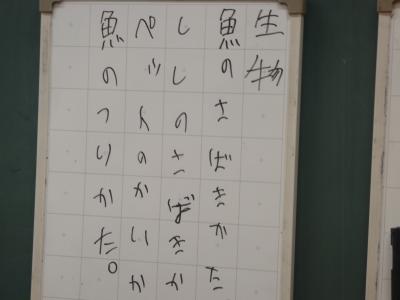 生物
魚のさばきかた
ししのさばきか
ペットのかいか
魚のつりかた。